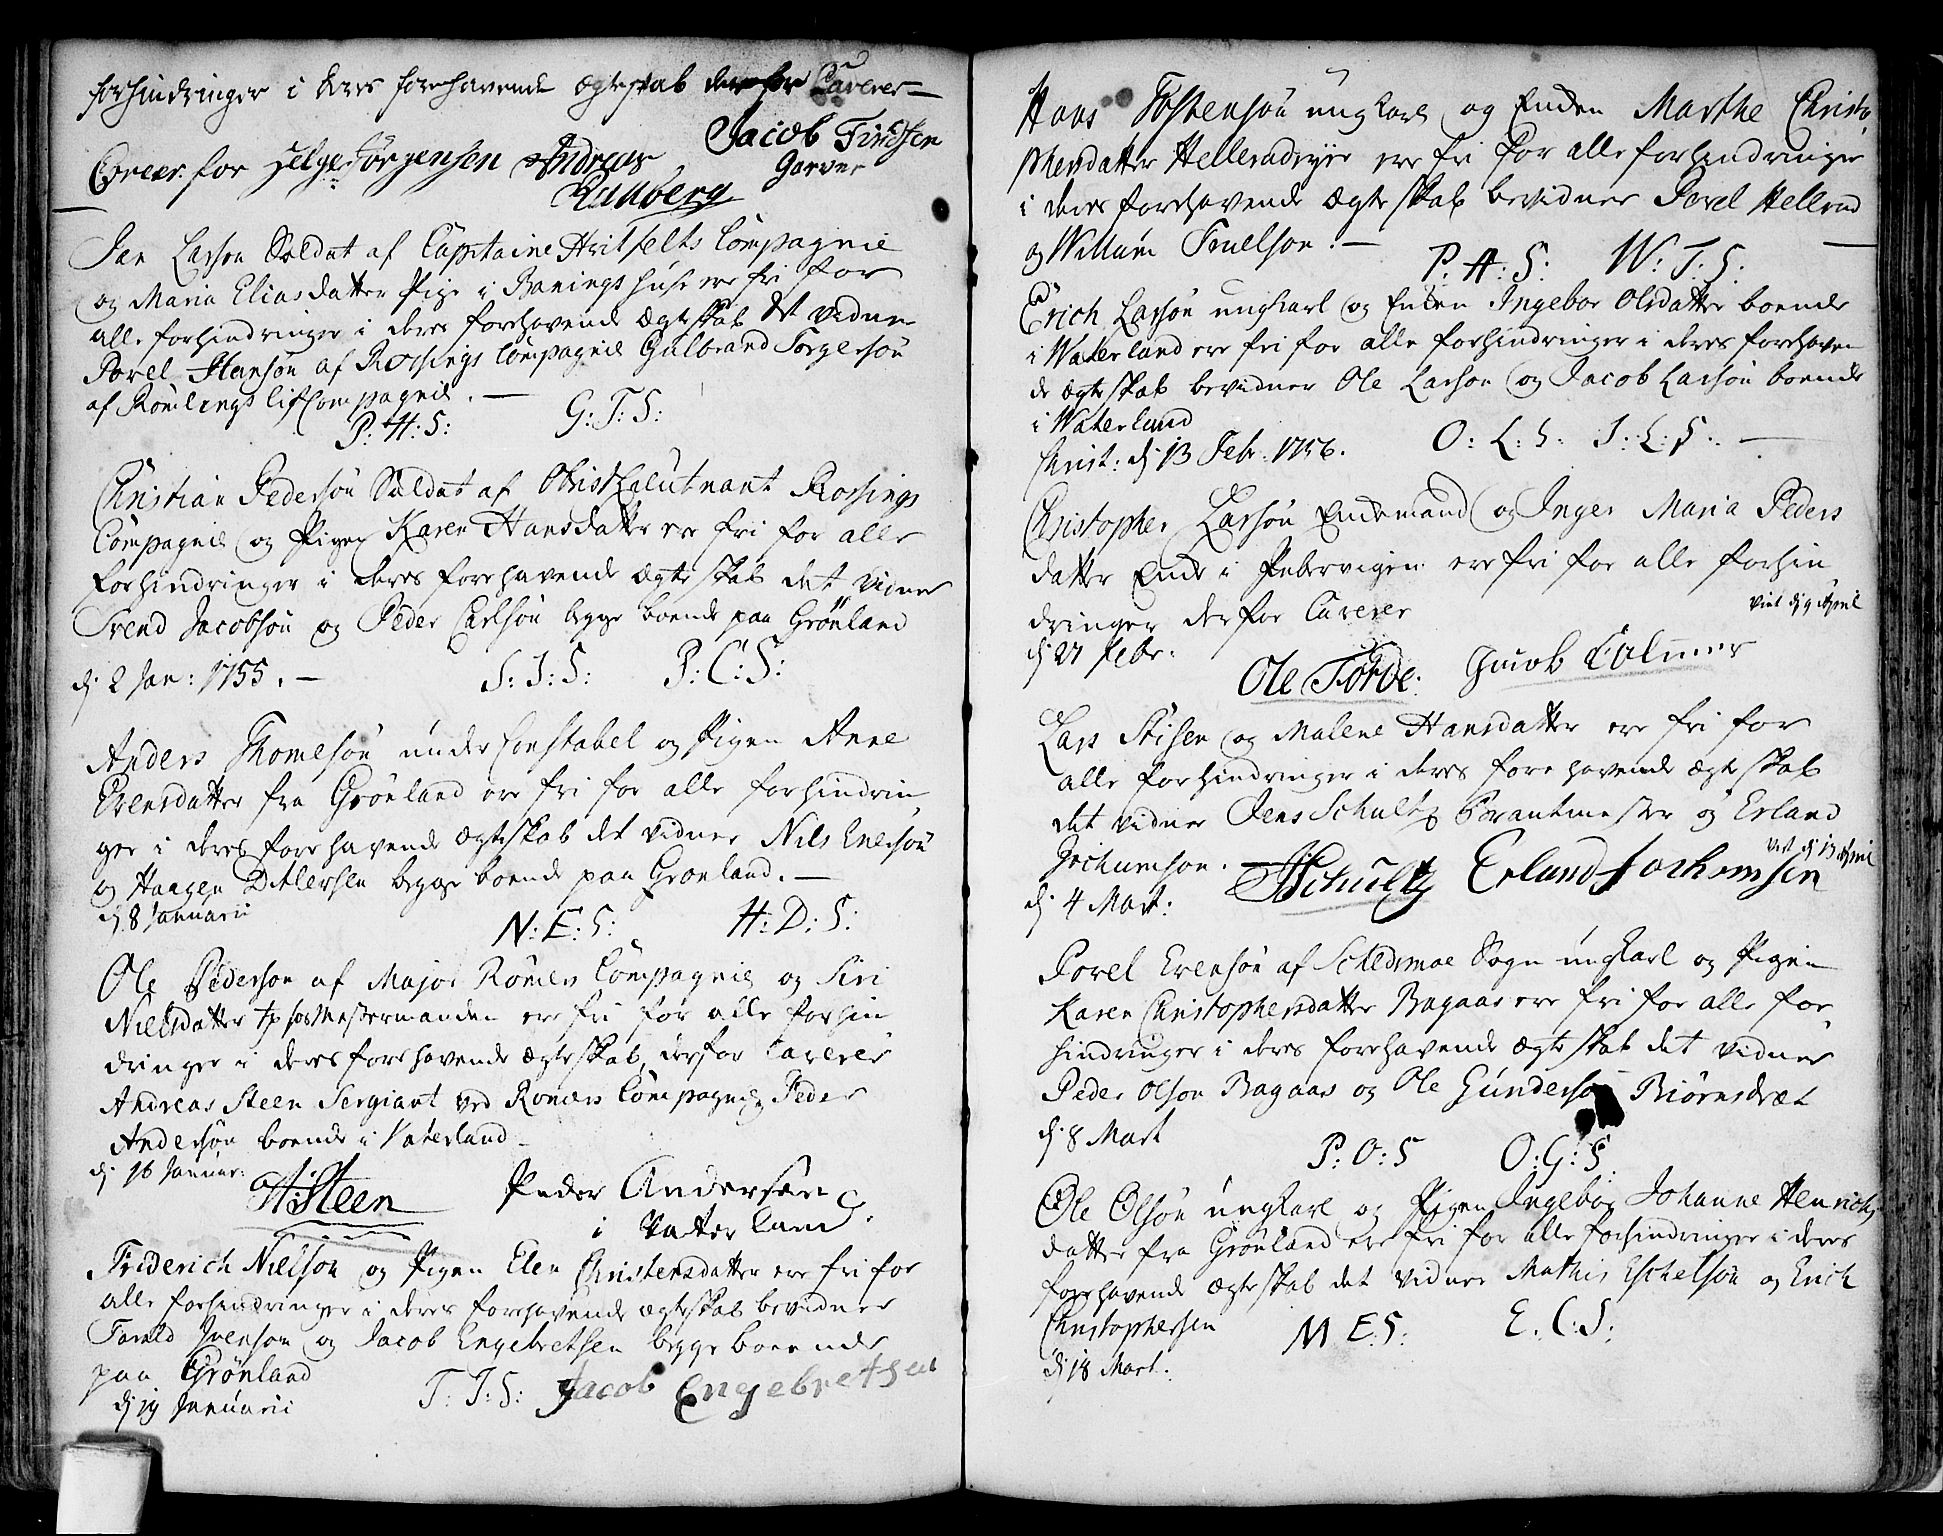 forhindringer i deres forehavende ægteskab derfor Caverer
Jacob Findsen
Career for Helge Jørgensen Andreas Garver
Runberg
Jan Larson Soldat af Capitaine Hvitfelts Compagnie
og Maria Eliasdatter Pige i Banings huse ere fri for
alle forhindringer i deres forehavende ægteskab det vidner
Povel Hansøn af Rossings Compagnie Gulbrand Torgersøn
af Rømlings lif Compagnie.
P: H: S: G: T: S:
Christian Pedersøn Soldat af Obristlieutnant Rossings
Compagnie og Pigen Karen Hansdatter ere fri for alle
forhindringer i deres forehavende ægteskab det vidner
Svend Jacobsøn og Peder Carlsøn begge boende paa Grønland
dj 2 Jan: 1755. S: J: S: P: C: S:
Anders Thomesøn under Constabel og Pigen Anne
Svensdatter fra Grønland ere fri for alle forhindrin
ger i deres forehavende ægteskab det vidner Nils Enersøn
og Haagen Ditlevsen begge boende paa Grønland.
dj 8 Januarii
N: E: S: H: D: S:
Ole Pedersøn af Major Rømers Compagnie og Siri
Nielsdatter hos Mastermanden ere fri for alle forhin
dringer i deres forehavende ægteskab, derfor Caverer
Andreas Steen Sergiant ved Romers Compagnie Peder
Andersøn boende i Vaterland
dj 16 Januar:
A: Steen Peder Andersøn
i Vaterland
Friderich Nielsøn og Pigen Elen Christensdatter ere fri for
alle forhindringer i deres forehavende ægteskab bevidner
Torald Ivensøn og Jacob Engebretsen begge boende
paa Grønland
dj 19 Januarii T: J: S: Jacob Engebretsen
Hans Tostensøn ungkarl og Enken Marthe Christo
phersdatter Hellerudeye ere fri for alle forhindringer
i deres forehavende ægteskab bevidner Povel Hellerud
og Willum Truelson.
P: H: S: W: T: S:
Erich Larsøn ungkarl og Enken Ingebor Olsdatter boende
i Waterland ere fri for alle forhindringer i deres forehaven
de ægteskab bevidner Ole Larsøn og Jacob Larsøn boende
i Waterland
O: L: S: J: L: S:
Christ: dj 13 Febr. 1756.
Christopher Larsøn Enkemand og Inger Maria Peders
datter Enke i Pebervigen ere fri for alle forhin
dringer derfor Caverer
viet dj 9 April
dj 27 febr:
Ole Torde. Jacob Colmer
Lars Stisen og Malene Hansdatter ere fri for
alle forhindringer i deres forehavende ægteskab
det vidner Jens Schultz Brantmester og Erland
Jochumson. viet dj 13 April
JSchultz Erland Jochemsen
dj 4 Mart:
Povel Evensøn af Schedsmoe Sogn ungkarl og Pigen
Karen Christophersdatter Bagaas ere fri for alle for
hindringer i deres forehavende ægteskab det vidner
Peder Olson Bagaas og Ole Gundersøn Biørnsdræt
dj 8 Mart
P: O: S O: G: S
Ole Olsøn ungkarl og Pigen Ingebor Johanne Henrichs
datter fra Grønland ere fri for alle forhindringer i deres
forehavende ægteskab det vidner Mathis Eschelsøn og Erich
Christophersen
M E: S: E: C: S:
dj 18 Mart: